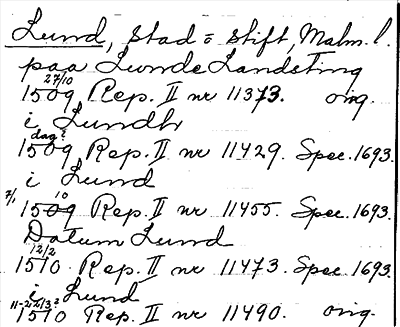 Lund, Stad o Stift, Malm. l.
paa Lunde Landsting
27/10
1509 Rep. II nr 11373. orig.
i Lundh
dag?
1509 Rep. II nr 11429. Spec. 1693.
i Lund
7/1 1509 10 Rep. II nr 11455. Spec. 1693.
Datum Lund
12/2
1510 Rep. II nr 11473. Spec. 1693
i Lund
11-22/3?
1510 Rep. II nr 11490. orig.